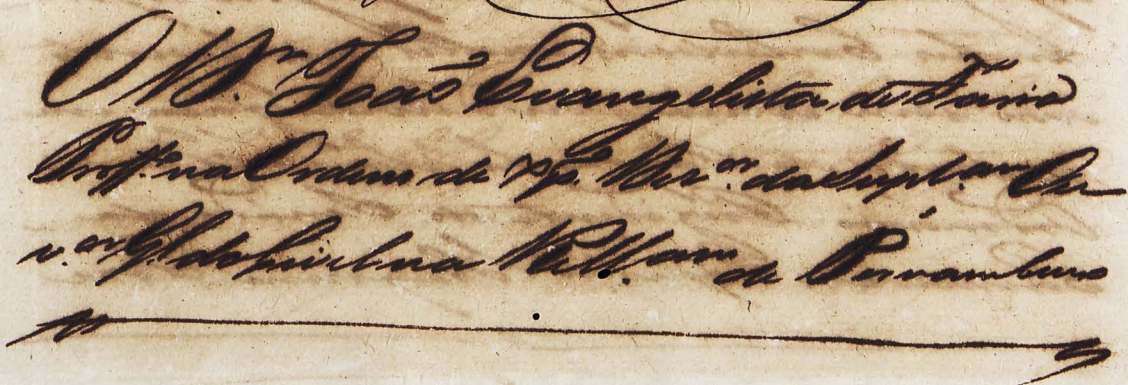 O D.or João Evangelista de Faria
Proff.o na Ordem de Xp.o Des.or da Supl.am Ou
v.or G.l do Civel na Rellam de Pernambuco